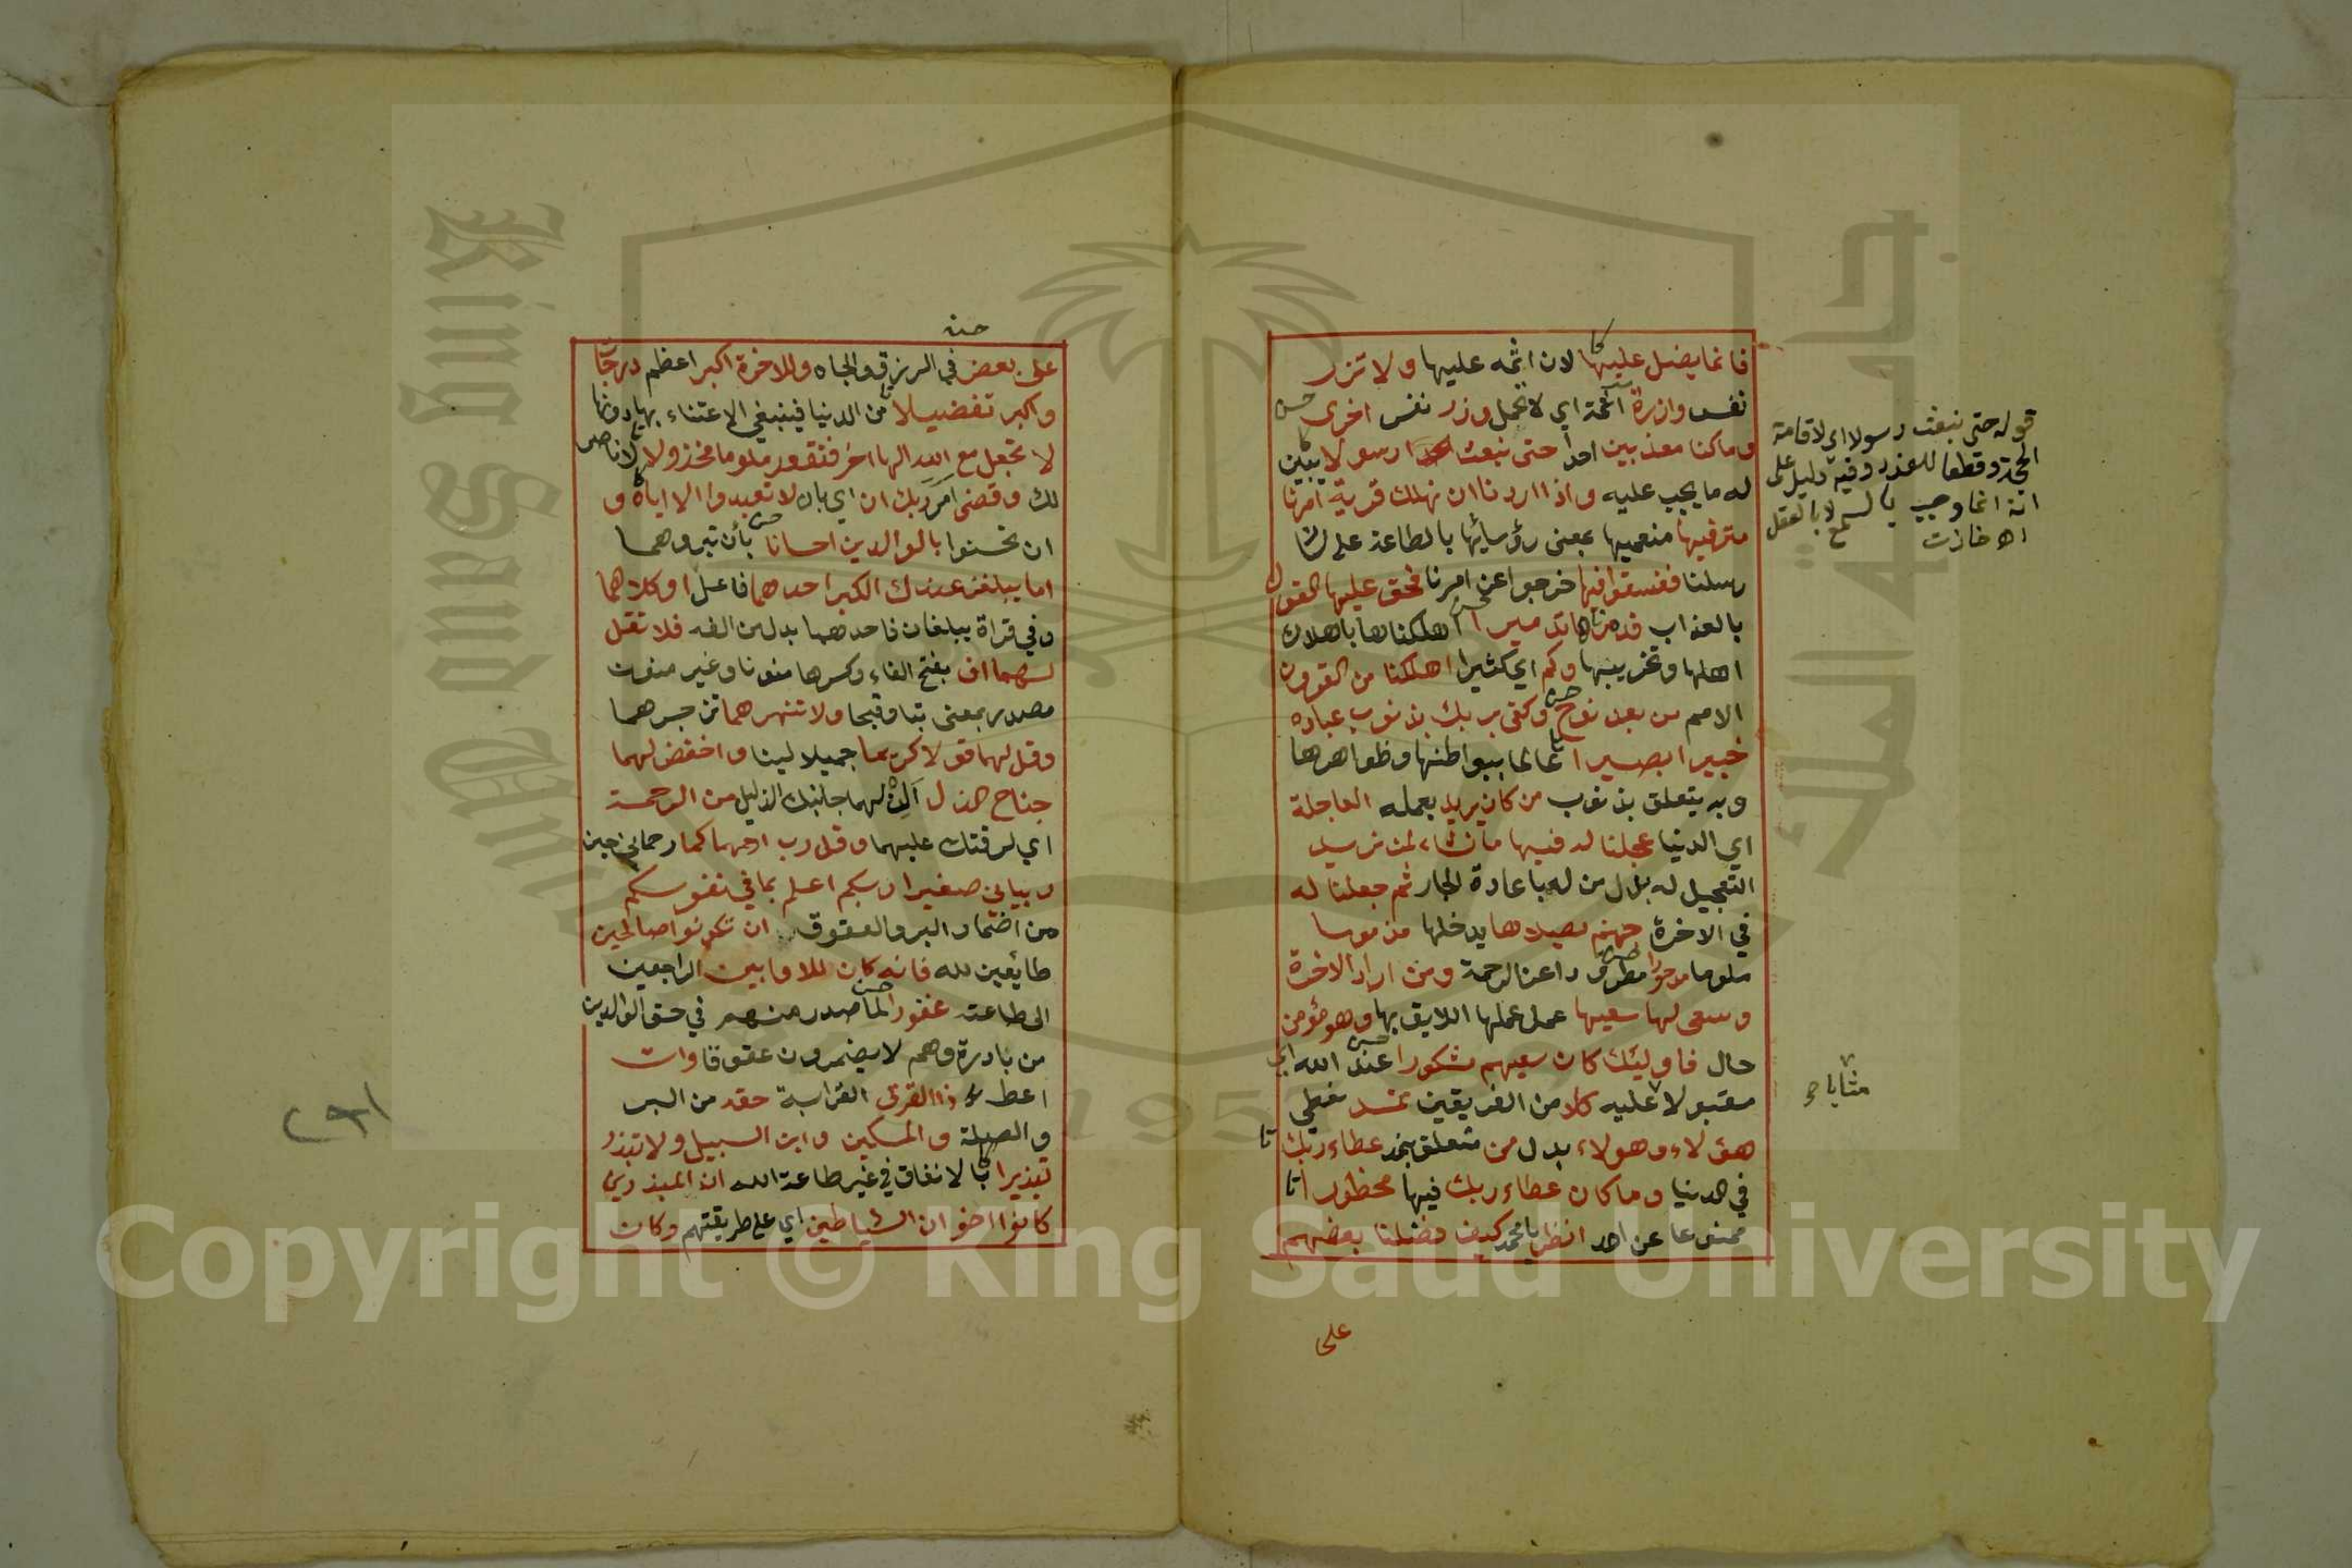 فانما يضل عليها لان اثمه عليها ولا تزر
نفس وازرة اثمة اي لا تحمل وزر نفس اخرى
وما كنا معذبين احدا حتى نبعث رسولا يبين
له ما يجب عليه واذا اردنا ان نهلك قرية امرنا
مترفيها منعميها بمعنى رؤسائها بالطاعة على لسان
رسلنا ففسقوا فيها خرجوا عن امرنا فحق عليها القول
بالعذاب فدمرناها تدميرا اهلكناها باهلاك
اهلها وتخريبها وكم اي كثيرا اهلكنا من القرون
الامم من بعد نوح وكفى بربك بذنوب عباده
خبيرا بصيرا عالما ببواطنها وظواهرها
وبه يتعلق بذنوب من كان يريد بعمله العاجلة
اي الدنيا عجلنا له فيها ما نشاء لمن نريد
التعجيل له بدل من له باعادة الجار ثم جعلنا له
في الاخرة جهنم يصلاها يدخلها مذموما
ملوما مدحورا مطرودا عن الرحمة ومن اراد الاخرة
وسعى لها سعيها عمل عملها اللايق بها وهو مؤمن
حال فاوليك كان سعيهم مشكورا عند الله اي
مقبولا عليه كلا من الفريقين نمد نعطي
هؤلاء وهولاء بدل من متعلق بنمد عطاء ربك
في الدنيا وما كان عطاء ربك فيها محظورا
ممنوعا عن احد انظر يا محمد كيف فضلنا بعضهم
على
قوله حتى نبعث رسولا اي لاقامة
الحجة وقطعا للعذر وفيه دليل على
انه انما وجب بالسمع لا بالعقل
اه خازن
مثابا
على بعض في الرزق والجاه وللاخرة اكبر اعظم درجات
واكبر تفضيلا من الدنيا فينبغي الاعتناء بها دونها
لا تجعل مع الله الها اخر فتقعد ملوما مخذولا لا ناصر
لك وقضى امر ربك ان اي بان لا تعبدوا الا اياه و
ان تحسنوا بالوالدين احسانا بأن تبروهما
اما يبلغن عندك الكبر احدهما فاعل او كلاهما
وفي قراة يبلغان فاحدهما بدل من الفه فلا تقل
لهما اف بفتح الفاء وكسرها منونا وغير منون
مصدر بمعنى تبا وقبحا ولا تنهرهما تزجرهما
وقل لهما قولا كريما جميلا لينا واخفض لهما
جناح الذل الن لهما جانبك الذليل من الرحمة
اي لرقتك عليهما وقل رب ارحمهما كما رحماني حين
ربياني صغيرا ربكم اعلم بما في نفوسكم
من اضمار البر والعقوق ان تكونوا صالحين
طايعين لله فانه كان للاوابين الراجعين
الى طاعته غفورا لما صدر منهم في حق الوالدين
من بادرة وهم لا يضمرون عقوقا وات
اعط ذا القربى القرابة حقه من البر
والصلة والمسكين وابن السبيل ولا تبذر
تبذيرا بالانفاق في غير طاعة الله ان المبذرين
كانوا اخوان الشياطين اي على طريقتهم وكان
Copyright © King Saud University